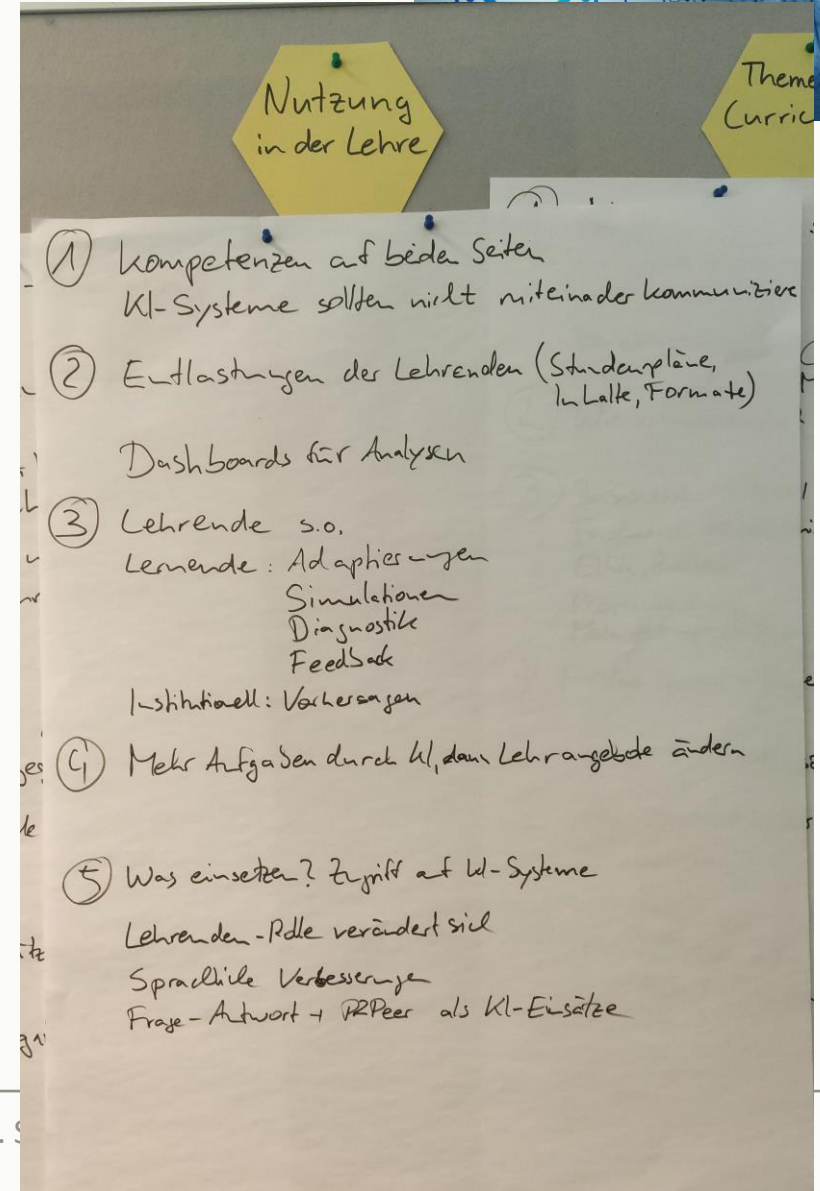 Nutzung
in der Lehre
Theme
Curric
① Kompetenzen auf beiden Seiten
KI-Systeme sollten nicht miteinader kommuniziere
② Entlastungen der Lehrenden (Stundenpläne,
Inhalte, Formate)
Dashboards für Analysen
③ Lehrende s.o.
Lernende: Adaptierungen
Simulationen
Diagnostik
Feedback
Institutionell: Vorhersagen
④ Mehr Aufgaben durch KI, dann Lehrangebote ändern
⑤ Was einsetzen? Zugriff auf KI-Systeme
Lehrenden-Rolle verändert sich
Sprachliche Verbesserungen
Frage-Antwort + P2Peer als KI-Einsätze